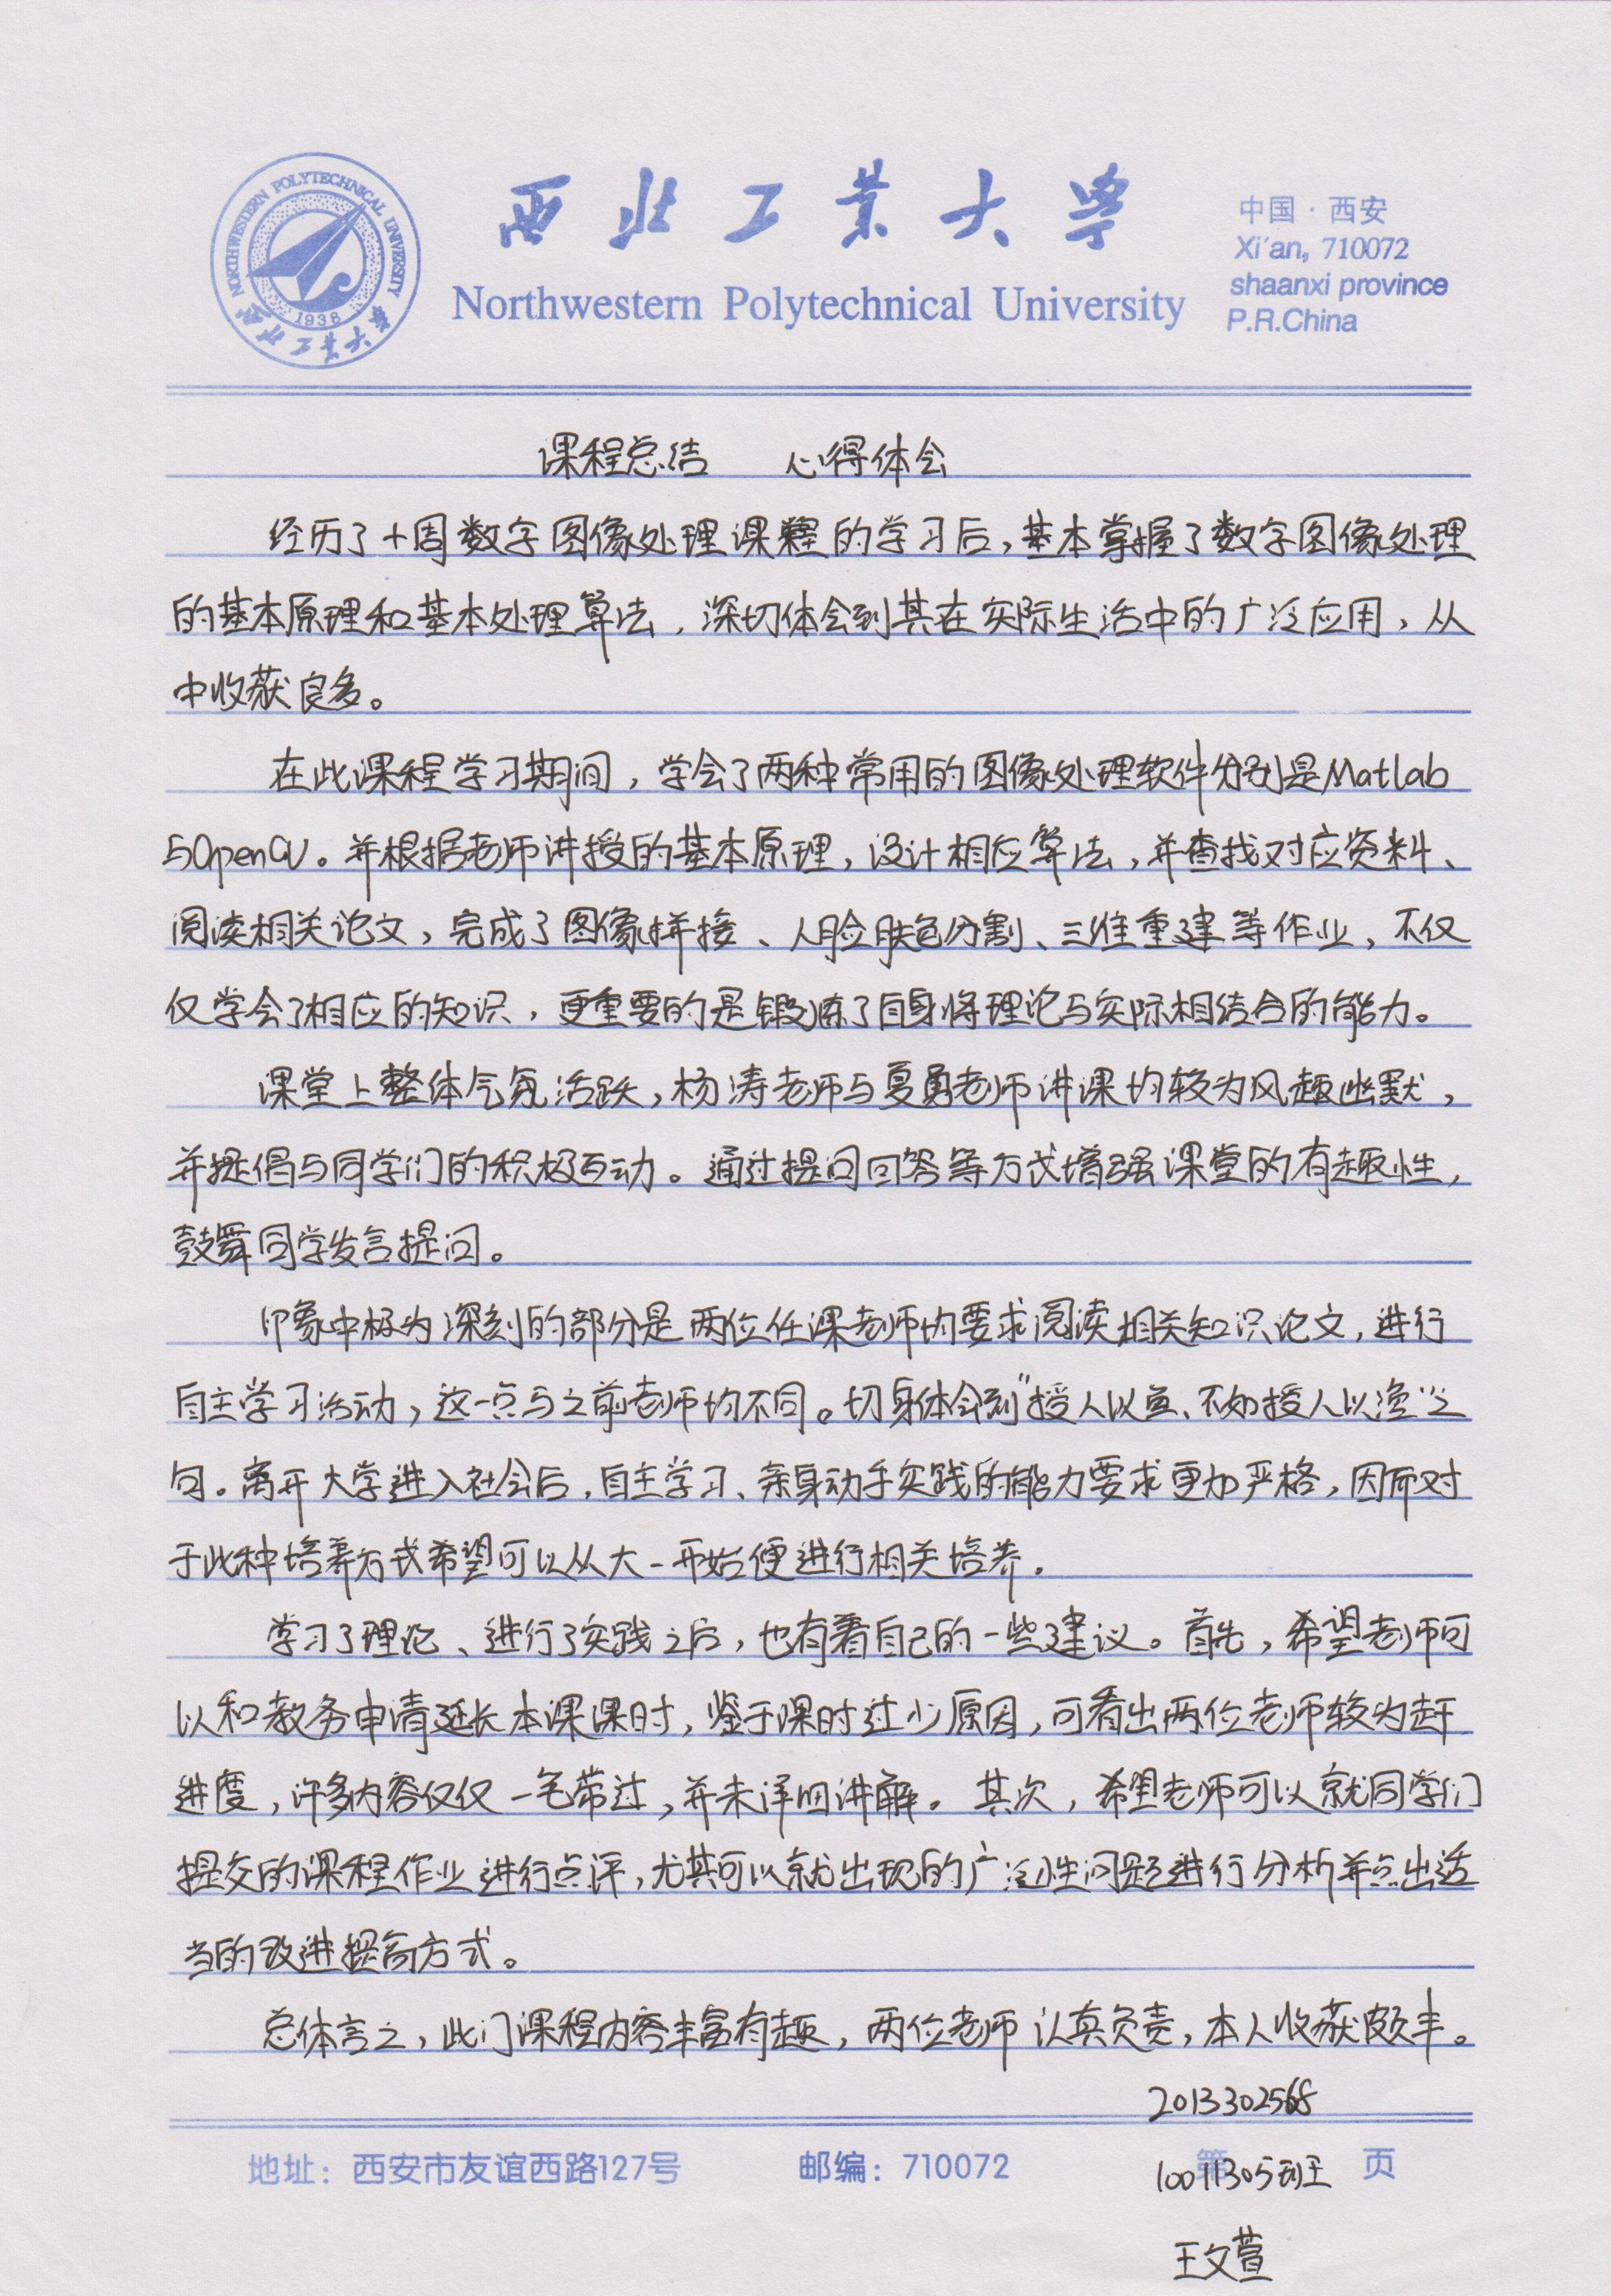 NORTHWESTERN POLYTECHNICAL UNIVERSITY
1938
西北工业大学
西北工业大学
Northwestern Polytechnical University
中国·西安
Xi'an, 710072
shaanxi province
P.R.China
课程总结 心得体会
经历了十周数字图像处理课程的学习后,基本掌握了数字图像处理
的基本原理和基本处理算法,深切体会到其在实际生活中的广泛应用,从
中收获良多。
在此课程学习期间,学会了两种常用的图像处理软件分别是Matlab
与OpenCV。并根据老师讲授的基本原理,设计相应算法,并查找对应资料、
阅读相关论文,完成了图像拼接、人脸肤色分割、三维重建等作业,不仅
仅学会了相应的知识,更重要的是锻炼了自身将理论与实际相结合的能力。
课堂上整体气氛活跃,杨涛老师与夏勇老师讲课均较为风趣幽默,
并提倡与同学们的积极互动。通过提问回答等方式增强课堂的有趣性,
鼓舞同学发言提问。
印象中极为深刻的部分是两位任课老师均要求阅读相关知识论文,进行
自主学习活动,这一点与之前老师均不同。切身体会到"授人以鱼、不如授人以渔"之
句。离开大学进入社会后,自主学习、亲身动手实践的能力要求更加严格,因而对
于此种培养方式希望可以从大一开始便进行相关培养。
学习了理论、进行了实践之后,也有着自己的一些建议。首先,希望老师可
以和教务申请延长本课课时,鉴于课时过少原因,可看出两位老师较为赶
进度,许多内容仅仅一笔带过,并未详细讲解。其次,希望老师可以就同学们
提交的课程作业进行点评,尤其可以就出现的广泛性问题进行分析并点出适
当的改进提高方式。
总体言之,此门课程内容丰富有趣,两位老师认真负责,本人收获颇丰。
2013302568
地址：西安市友谊西路127号 邮编：710072 第 页
10011305班
王文萱